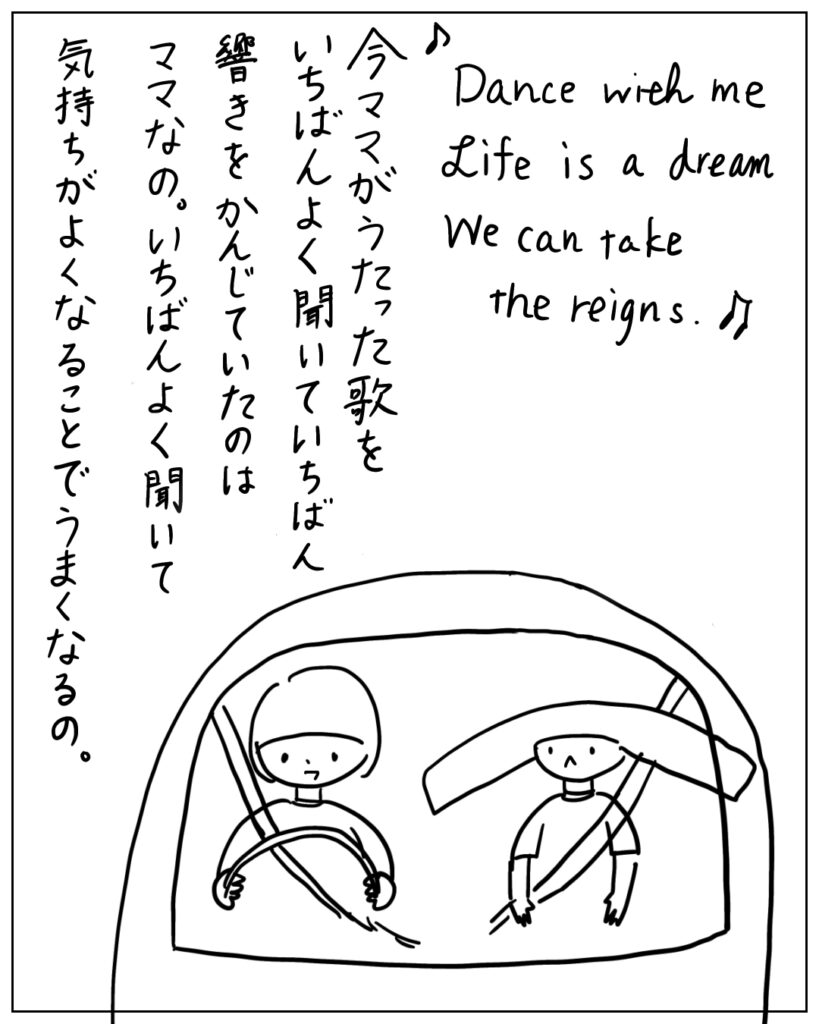 ♪
Dance with me
Life is a dream
We can take
the reigns. ♫
今ママがうたった歌を
いちばんよく聞いていちばん
響きをかんじていたのは
ママなの。いちばんよく聞いて
気持ちがよくなることでうまくなるの。